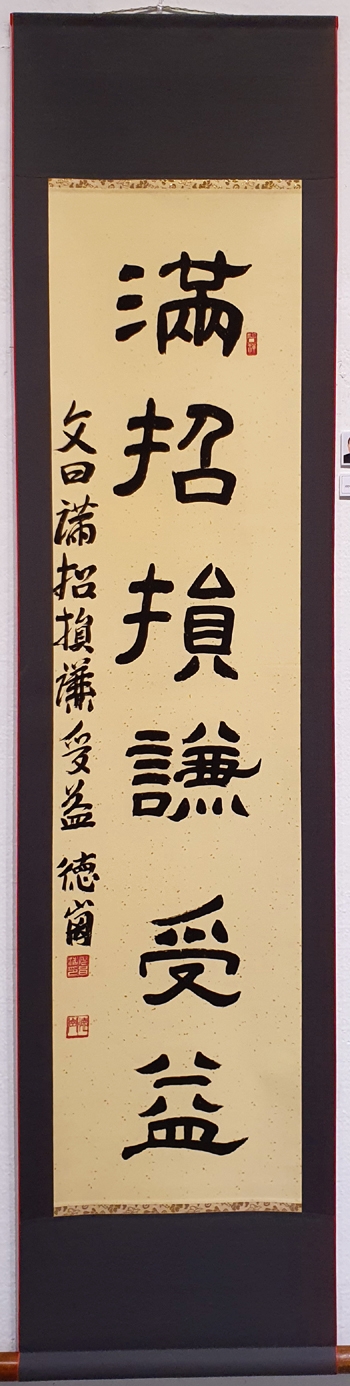 滿招損謙受益
文曰滿招損謙受益 德崗